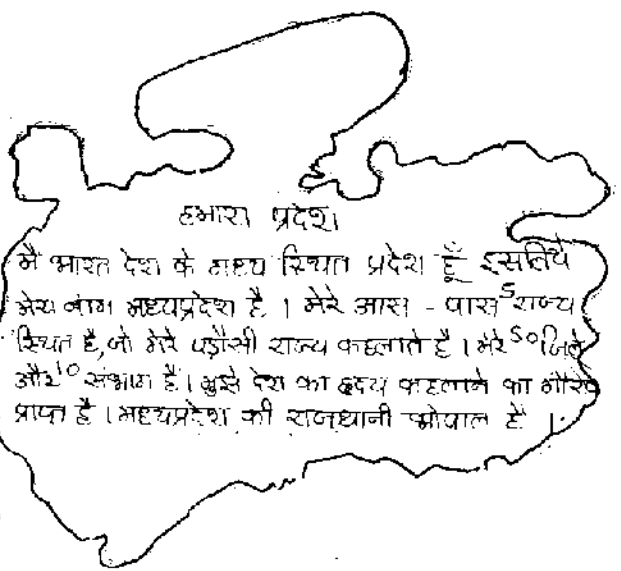 हमारा प्रदेश
मैं भारत देश के मध्य स्थित प्रदेश हूँ इसलिये
मेरा नाम मध्यप्रदेश है । मेरे आस - पास 5 राज्य
स्थित है, जो मेरे पड़ौसी राज्य कहलाते है । मेरे 50 जिले
और 10 संभाग है । मुझे देश का हृदय कहलाने का गौरव
प्राप्त है । मध्यप्रदेश की राजधानी भोपाल है ।